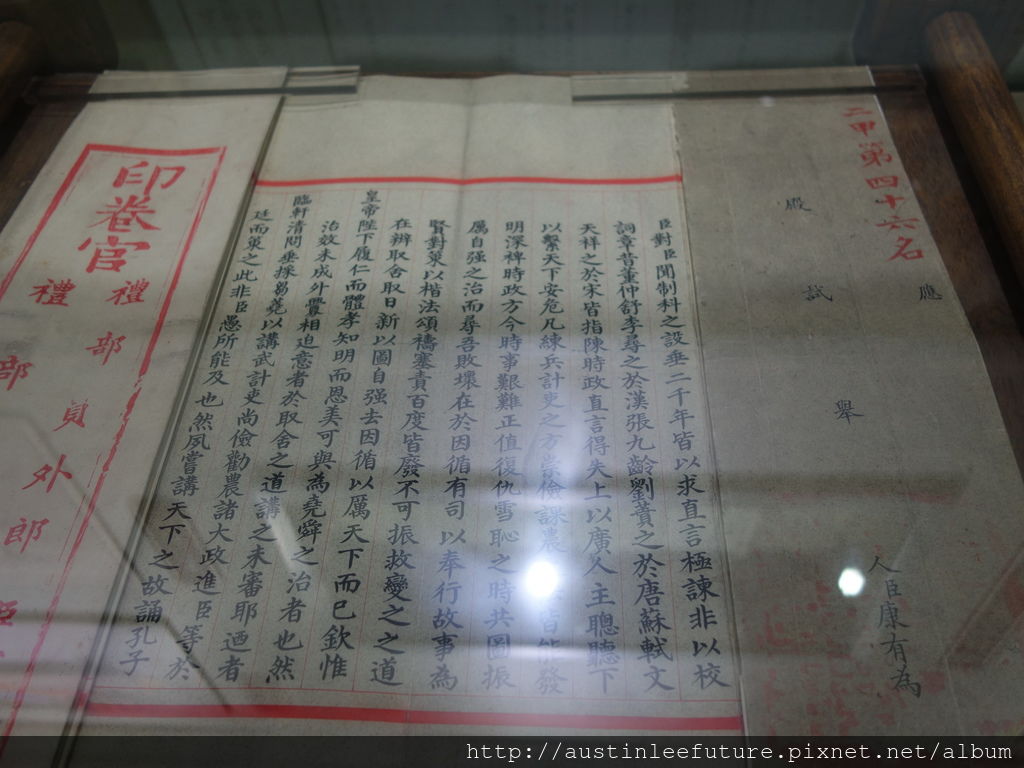 二甲第四十六名
應
殿
試
舉
人臣康有為
臣對臣聞制科之設垂二千年皆以求直言極諫非以校
詞章昔董仲舒李尋之於漢張九齡劉蕡之於唐蘇軾文
天祥之於宋皆指陳時政直言得失上以廣人主聰聽下
以繫天下安危凡練兵計吏之方崇儉課農皆能發
明深裨時政方今時事艱難正值復仇雪恥之時共圖振
厲自强之治而尋吾敗壞在於因循有司以奉行故事為
賢對策以楷法頌禱塞責百度皆廢不可振救變之之道
在辨取舍取日新以圖自强去因循以厲天下而已欽惟
皇帝陛下履仁而體孝知明而恩美可與為堯舜之治者也然
治效未成外釁相迫意者於取舍之道講之未審耶迺者
臨軒清問垂採芻蕘以講武計吏尚儉勸農諸大政進臣等於
廷而策之此非臣愚所能及也然夙嘗講天下之故誦孔子
印卷官
禮部員外郎臣
禮部
http://austinleefuture.pixnet.net/album